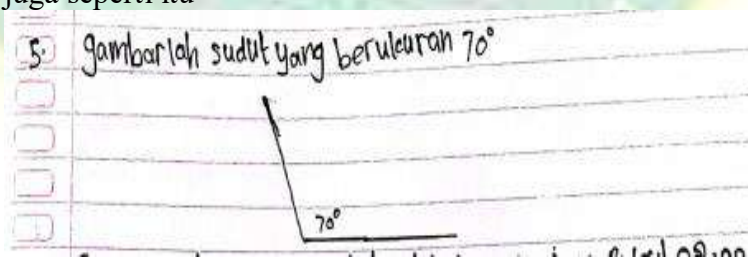 juga seperti itu
5. gambarlah sudut yang berukuran 70°
70°